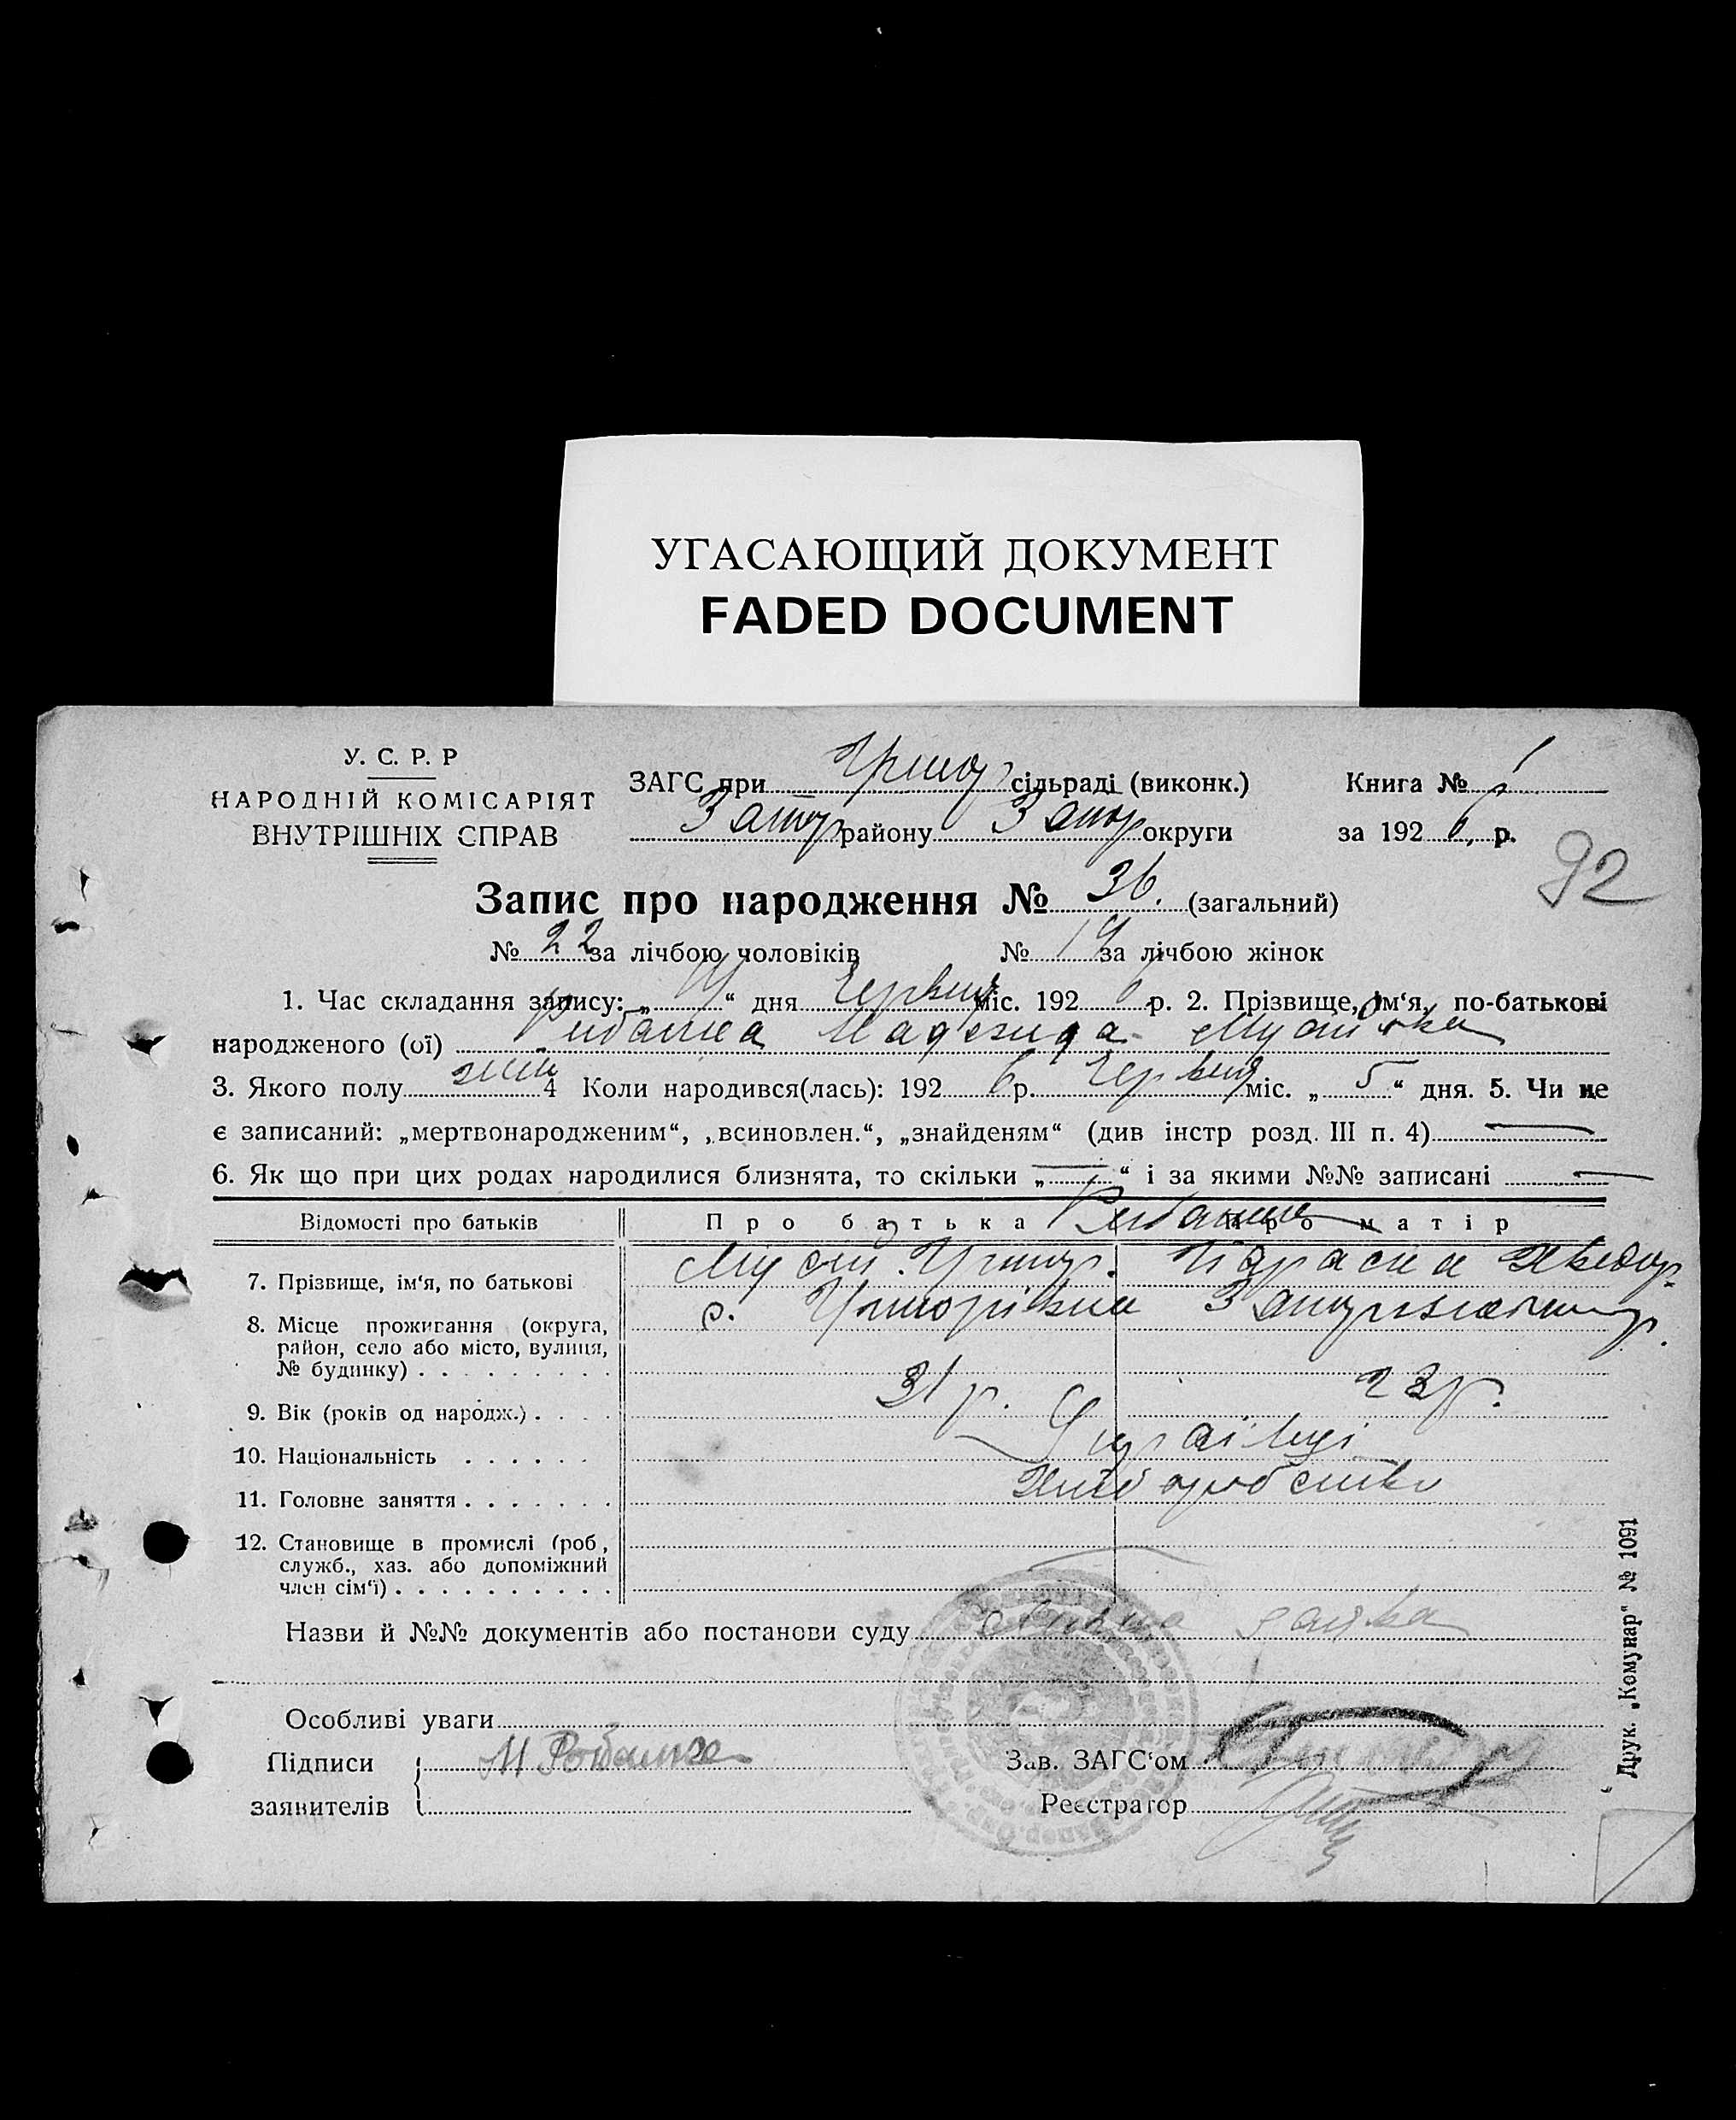 УГАСАЮЩИЙ ДОКУМЕНТ
FADED DOCUMENT
У. С. Р. Р
НАРОДНІЙ КОМІСАРІЯТ
ВНУТРІШНІХ СПРАВ
ЗАГС при Григор сільраді (виконк.)
Запор району Запор округи
Книга № 1
за 1926 р.
92
Запис про народження № 36. (загальний)
№ 22 за лічбою чоловіків № 14 за лічбою жінок
1. Час складання запису: „ “ дня Червня міс. 1926 р. 2. Прізвище, ім‘я, по-батькові
народженого (ої) Рибалка Надежда
3. Якого полу жін 4 Коли народився(лась): 1926 р. Червня міс. „5“ дня. 5. Чи не
є записаний: „мертвонародженим“, „всиновлен.“, „знайденям“ (див інстр розд. III п. 4)
6. Як що при цих родах народилися близнята, то скільки „ “ і за якими №№ записані
Відомості про батьків Про батька Про матір
Рибалки
7. Прізвище, ім‘я, по батькові Мусій Григор. Хведор.
8. Місце проживання (округа, район, село або місто, вулиця, № будинку) с. Григорівка
9. Вік (років од народж.) 31 р. 23 р.
10. Національність Українці
11. Головне заняття Хліборобство
12. Становище в промислі (роб, служб., хаз. або допоміжний член сім‘ї)
Назви й №№ документів або постанови суду заява
Особливі уваги
Підписи заявителів М Рибалка
Зав. ЗАГС‘ом
Реєстратор
Друк. „Комунар“ № 1091